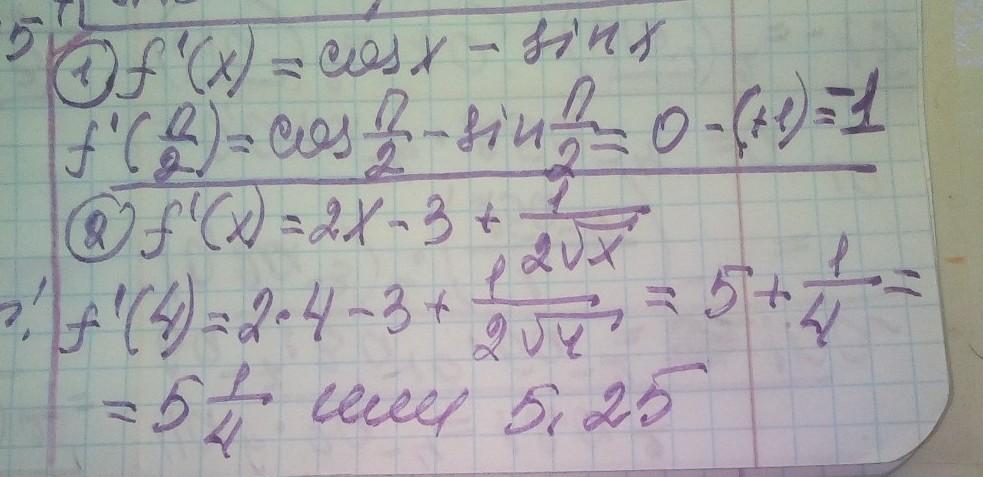 5
① f'(x) = cos x - sin x
f'(π/2) = cos π/2 - sin π/2 = 0 - (+1) = -1
② f'(x) = 2x - 3 + 1/(2√x)
f'(4) = 2·4 - 3 + 1/(2√4) = 5 + 1/4 =
= 5 1/4 или 5,25